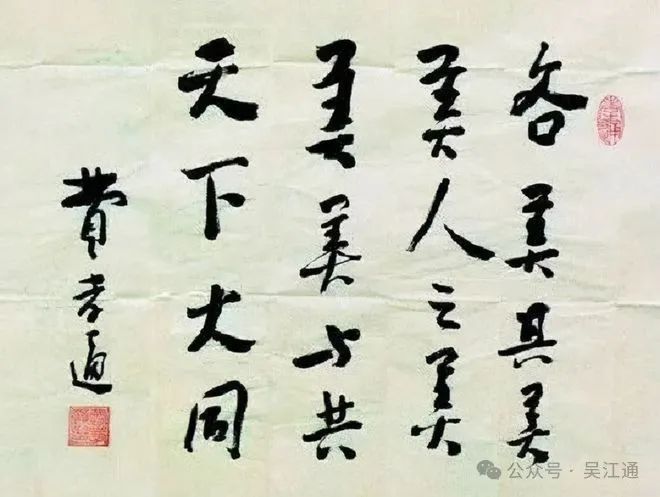 各美其美
美人之美
美美与共
天下大同
费孝通
公众号·吴江通